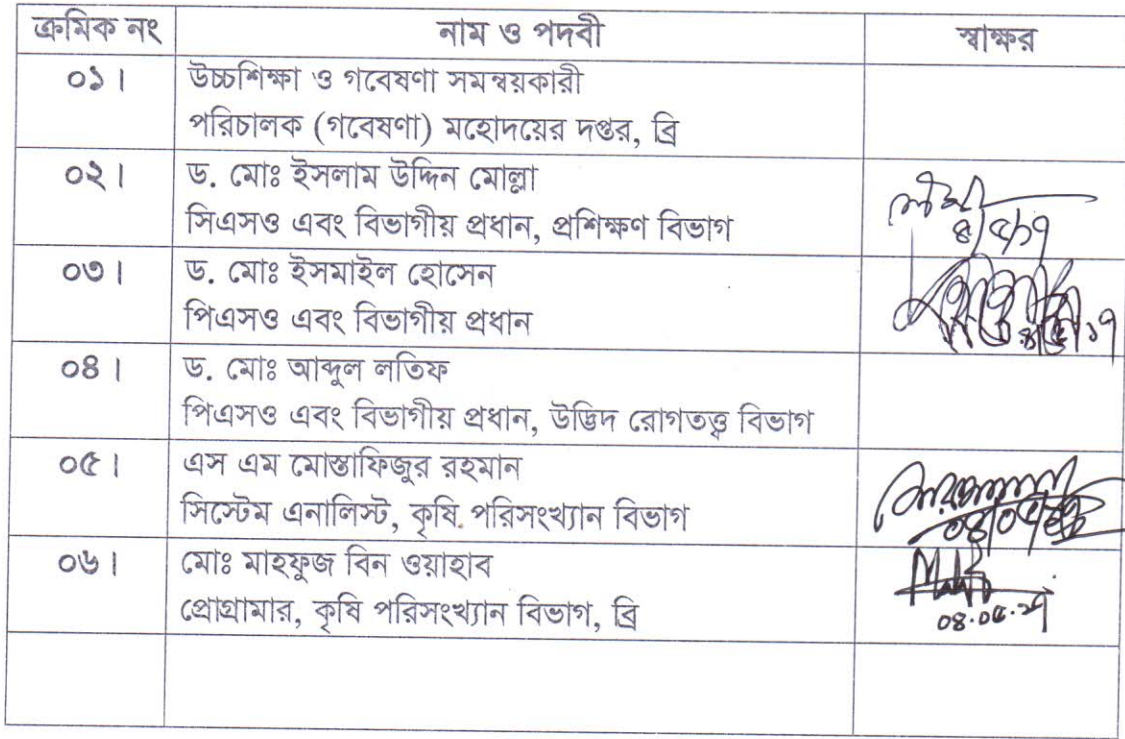 ক্রমিক নং নাম ও পদবী স্বাক্ষর
০১। উচ্চশিক্ষা ও গবেষণা সমন্বয়কারী
পরিচালক (গবেষণা) মহোদয়ের দপ্তর, ব্রি
০২। ড. মোঃ ইসলাম উদ্দিন মোল্লা
সিএসও এবং বিভাগীয় প্রধান, প্রশিক্ষণ বিভাগ
৪/৫/১৭
০৩। ড. মোঃ ইসমাইল হোসেন
পিএসও এবং বিভাগীয় প্রধান
০৪। ড. মোঃ আব্দুল লতিফ
পিএসও এবং বিভাগীয় প্রধান, উদ্ভিদ রোগতত্ত্ব বিভাগ
০৫। এস এম মোস্তাফিজুর রহমান
সিস্টেম এনালিস্ট, কৃষি পরিসংখ্যান বিভাগ
০৬। মোঃ মাহফুজ বিন ওয়াহাব
প্রোগ্রামার, কৃষি পরিসংখ্যান বিভাগ, ব্রি
০৪.০৫.১৭